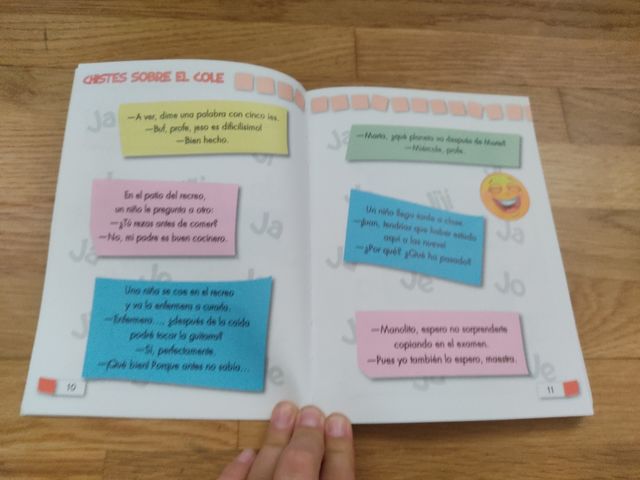 CHISTES SOBRE EL COLE
—A ver, dime una palabra con cinco íes.
—Buf, profe, ¡eso es dificilísimo!
—Bien hecho.
En el patio del recreo,
un niño le pregunta a otro:
—¿Tú rezas antes de comer?
—No, mi padre es buen cocinero.
Una niña se cae en el recreo
y va la enfermera a curarla.
—Enfermera..., ¿después de la caída
podré tocar la guitarra?
—Sí, perfectamente.
—¡Qué bien! Porque antes no sabía...
10
—Marta, ¿qué planeta va después de Marte?
—Miércole, profe.
Un niño llega tarde a clase.
—Juan, tendrías que haber estado
aquí a las nueve!
—¿Por qué? ¿Qué ha pasado?
—Manolito, espero no sorprenderte
copiando en el examen.
—Pues yo también lo espero, maestra.
11
Ja
Ja
Ja
Jiji
Ja
Je
Jo
Je